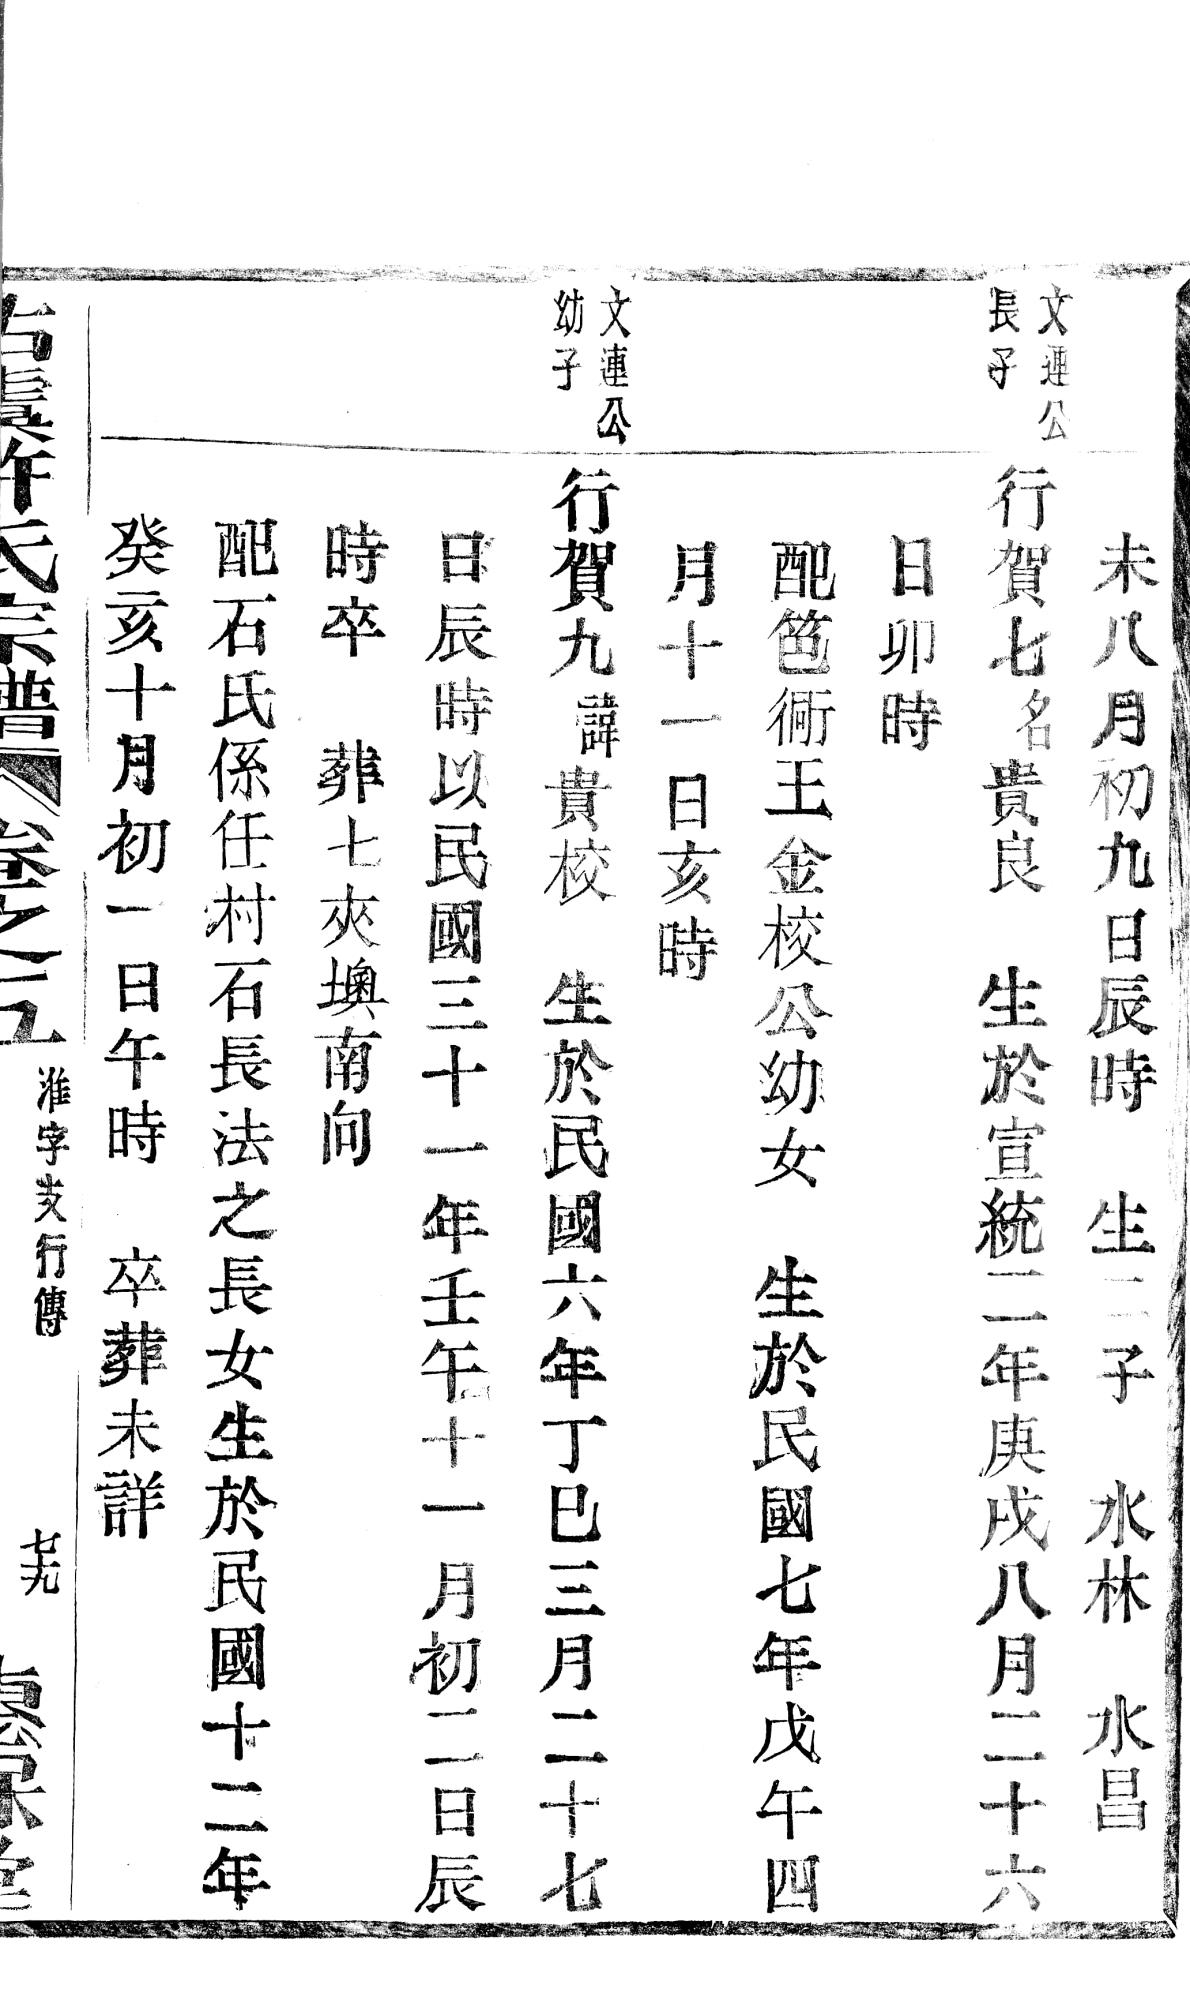 未八月初九日辰時　生二子　水林　水昌
文連公
長子
行賀七名貴良　生於宣統二年庚戌八月二十六
日卯時
配笆衕王金校公幼女　生於民國七年戊午四
月十一日亥時
文連公
幼子
行賀九諱貴校　生於民國六年丁巳三月二十七
日辰時以民國三十一年壬午十一月初二日辰
時卒　葬七夾墺南向
配石氏係任村石長法之長女生於民國十二年
癸亥十月初一日午時　卒葬未詳
古虞許氏宗譜　卷之五　淮字支行傳　七九　惠保堂